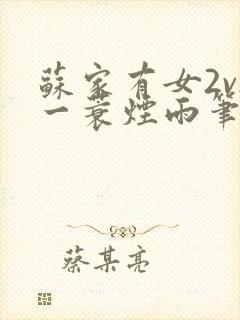 蘇家有女2v
一蓑煙雨筆
蔡某亮